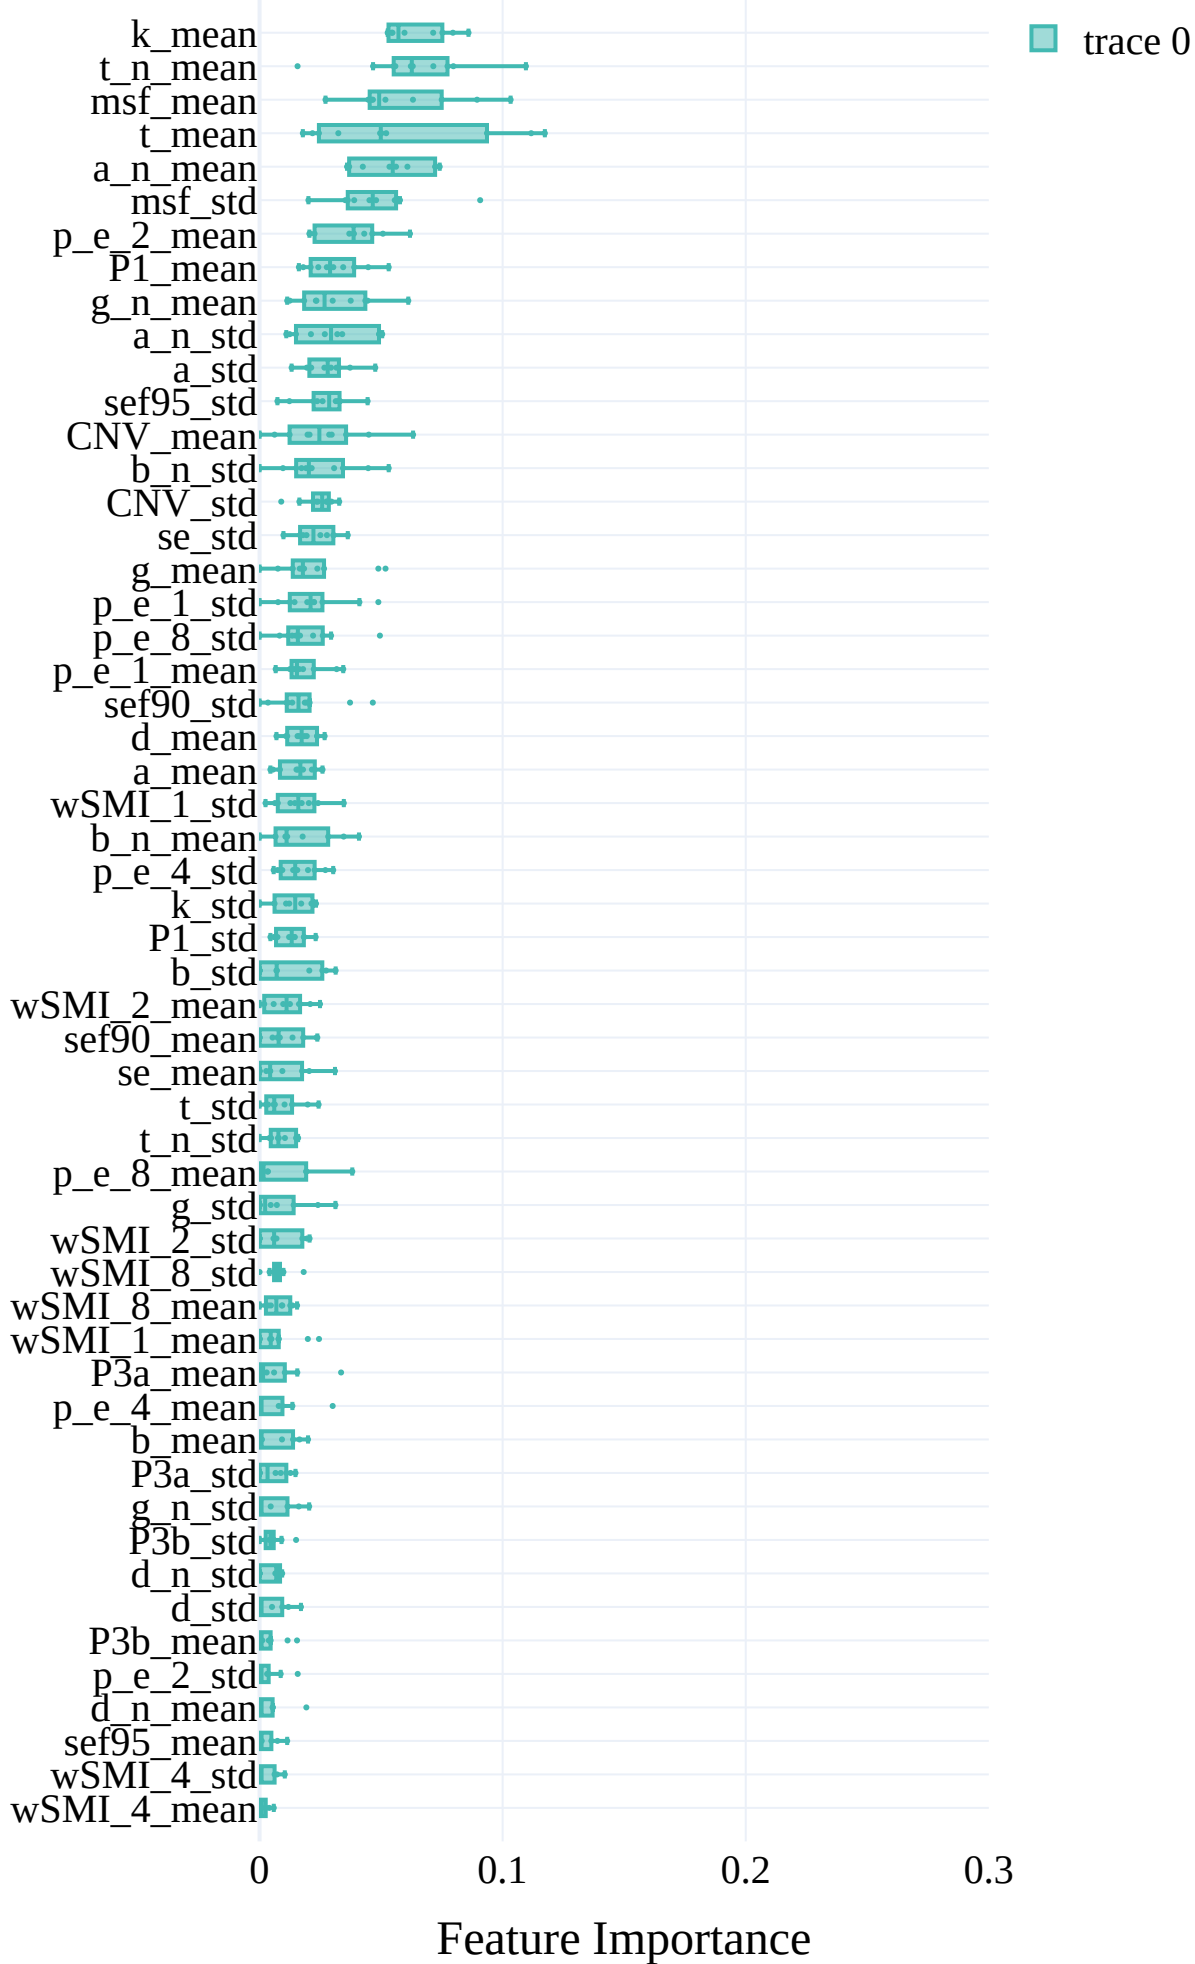 k_mean
trace 0
t_n_mean
msf_mean
t_mean
a_n_mean
msf_std
p_e_2_mean
P1_mean
g_n_mean
a_n_std
a_std
sef95_std
CNV_mean
b_n_std
CNV_std
se_std
g_mean
p_e_1_std
p_e_8_std
p_e_1_mean
sef90_std
d_mean
a_mean
wSMI_1_std
b_n_mean
p_e_4_std
k_std
P1_std
b_std
wSMI_2_mean
sef90_mean
se_mean
t_std
t_n_std
p_e_8_mean
g_std
wSMI_2_std
wSMI_8_std
wSMI_8_mean
wSMI_1_mean
P3a_mean
p_e_4_mean
b_mean
P3a_std
g_n_std
P3b_std
d_n_std
d_std
P3b_mean
p_e_2_std
d_n_mean
sef95_mean
wSMI_4_std
wSMI_4_mean
0 0.1 0.2 0.3
Feature Importance